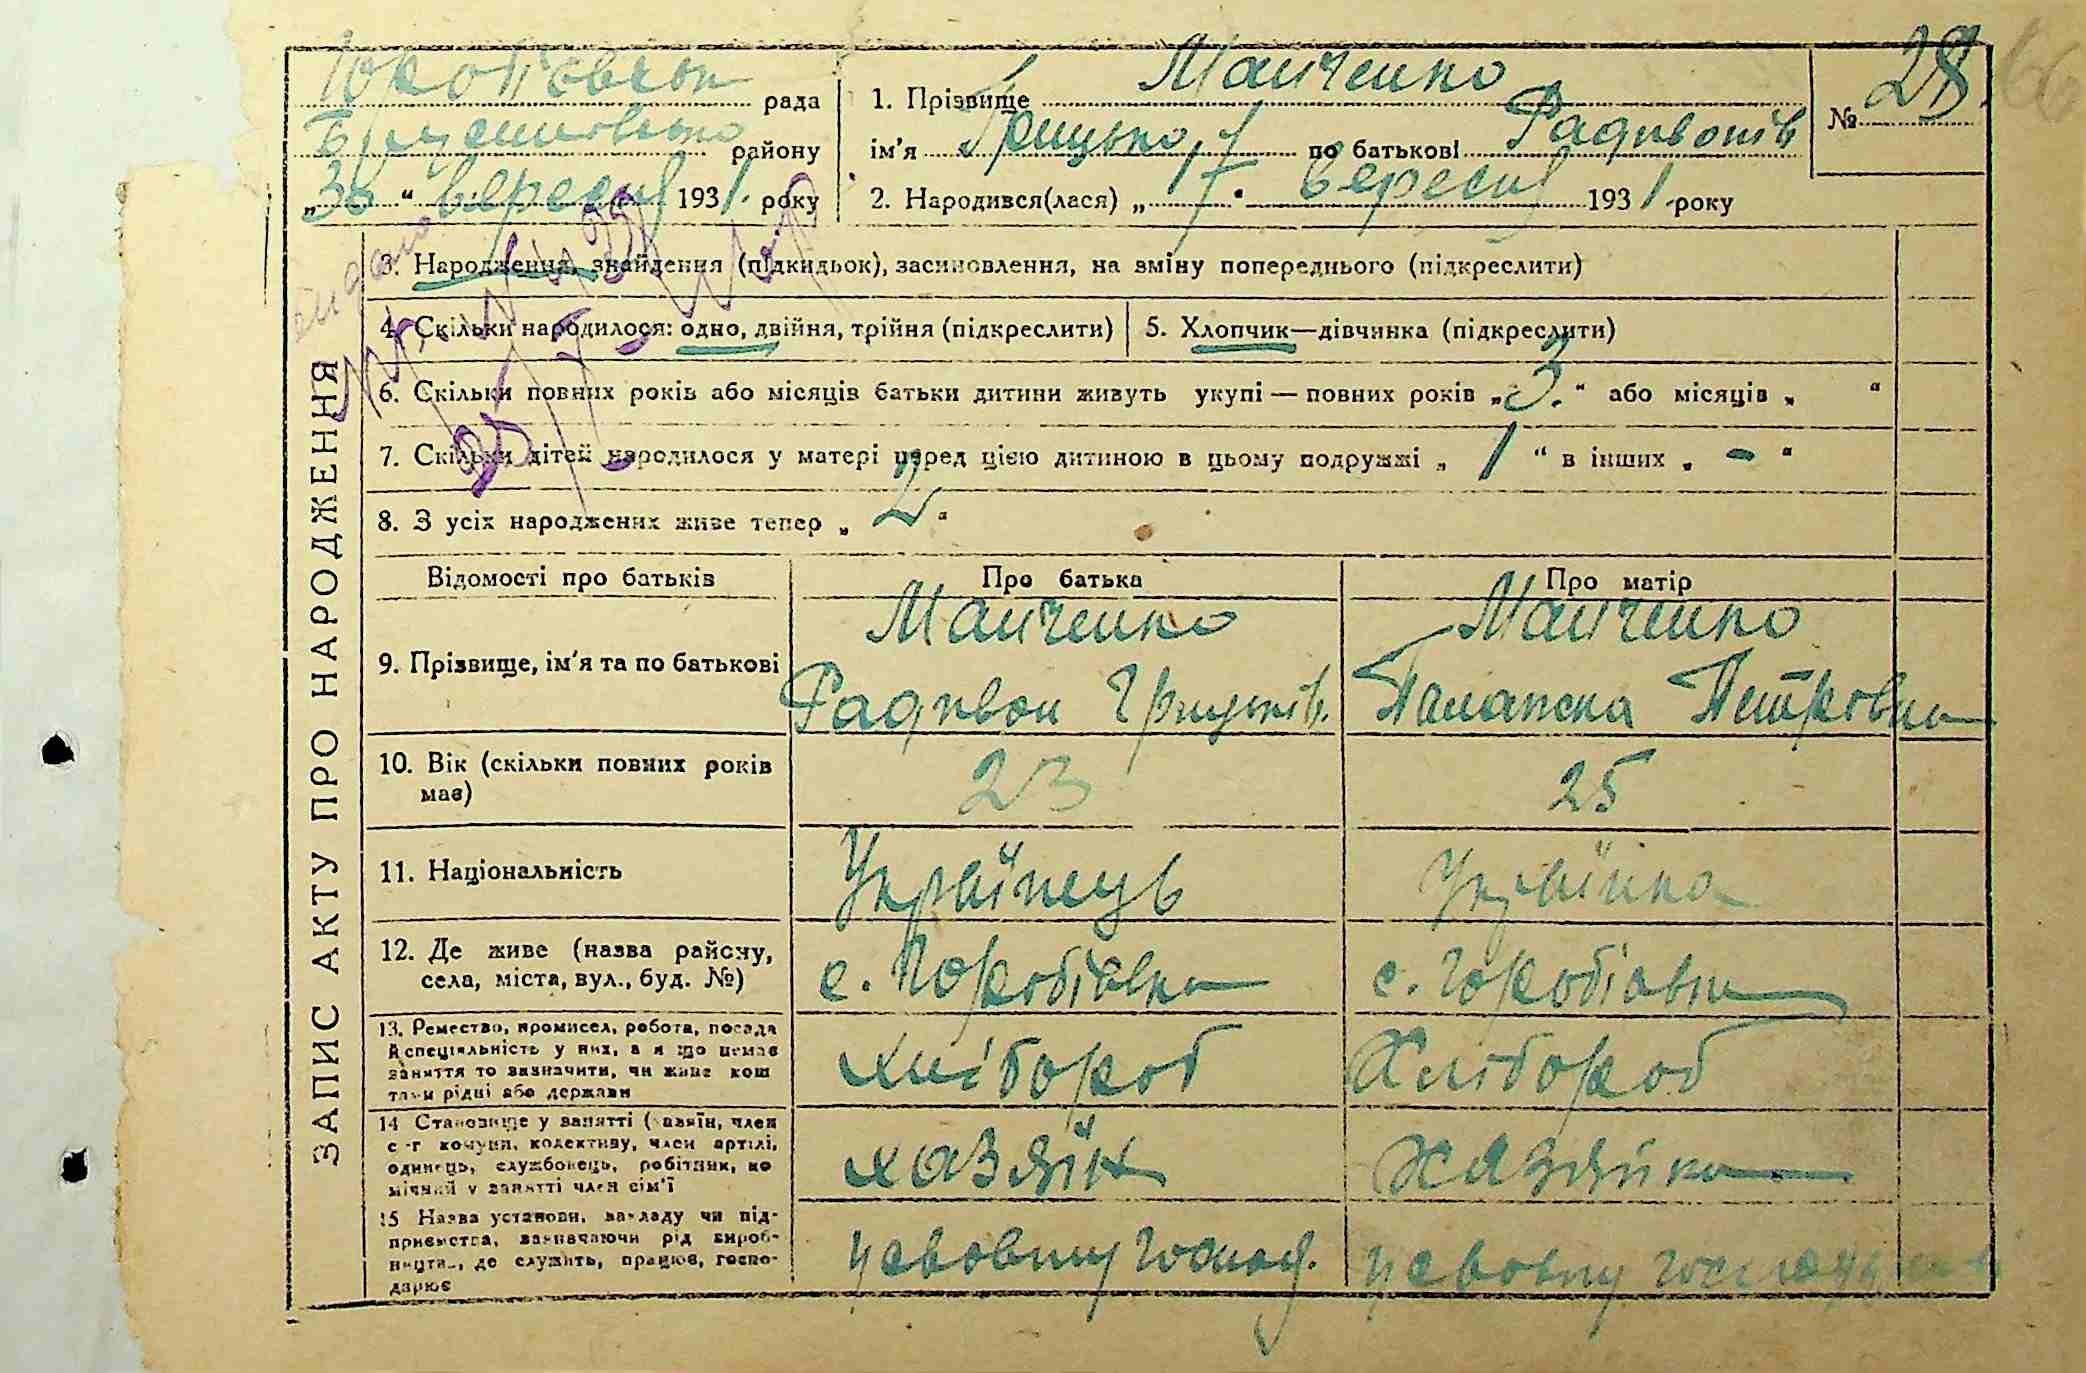 рада
району
„30“ вересня 1931. року
1. Прізвище Манченко
ім'я Грицько, по батькові Радивонів
2. Народився(лася) „7“ вересня 1931 року
№ 28
66
ЗАПИС АКТУ ПРО НАРОДЖЕННЯ
3. Народження, знайдення (підкидьок), засиновлення, на зміну попереднього (підкреслити)
4. Скільки народилося: одно, двійня, трійня (підкреслити)
5. Хлопчик—дівчинка (підкреслити)
6. Скільки повних років або місяців батьки дитини живуть укупі — повних років „3.“ або місяців „ “
7. Скільки дітей народилося у матері перед цією дитиною в цьому подружжі „1“ в інших „-“
8. З усіх народжених живе тепер „2“
Відомості про батьків
Про батька
Про матір
9. Прізвище, ім'я та по батькові
Манченко
Радивон Грицьків.
Манченко
Палажка Петровна
10. Вік (скільки повних років має)
23
25
11. Національність
Українець
Українка
12. Де живе (назва району,
села, міста, вул., буд. №)
с. Горобіївка
с. Горобіївка
13. Ремество, промисел, робота, посада
й спеціяльність у них, а якщо немає
заняття то зазначити, чи живе кош
тами рідні або держави
хлібороб
Хлібороб
14 Становище у занятті (хазяїн, член
с-г комуни, колективу, член артілі,
одинець, службовець, робітник, по
мічний у занятті член сім'ї
хазяїн
Хазяйка
15 Назва установи, закладу чи під-
приємства, зазначаючи рід вироб-
ництва, де служить, працює, госпо-
дарює
у своему господ.
у своему господ